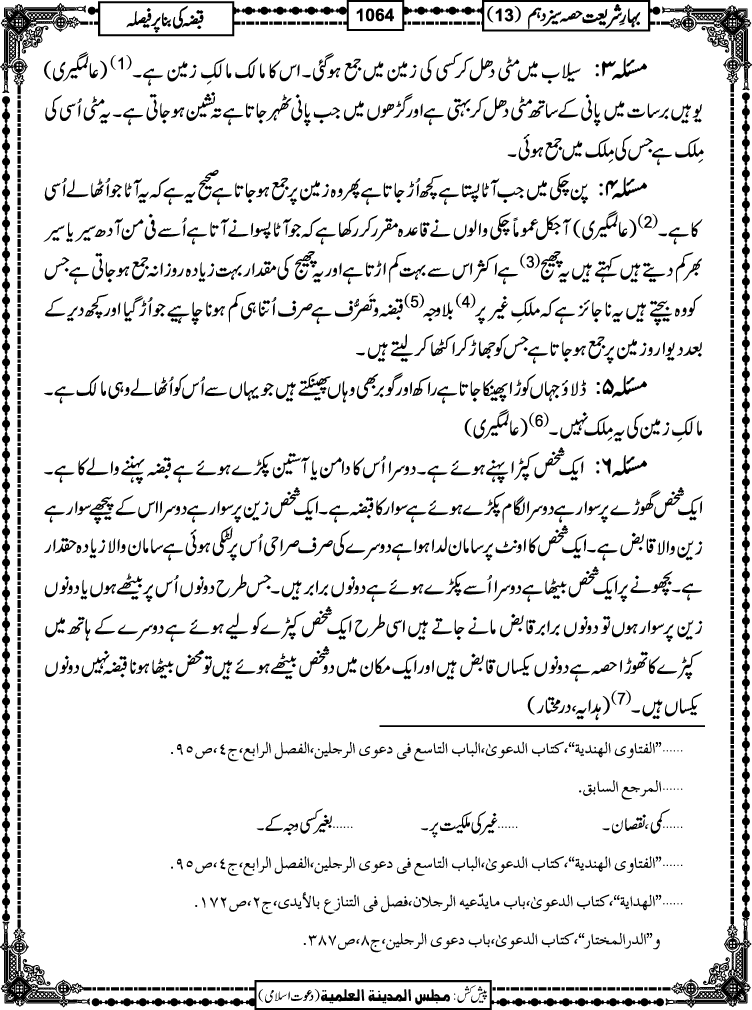 بہارِ شریعت حصہ سیزدہم (13)
1064
قبضہ کی بنا پر فیصلہ
مسئلہ ۳: سیلاب میں مٹی دھل کر کسی کی زمین میں جمع ہوگئی۔ اس کا مالک مالکِ زمین ہے۔(1) (عالمگیری)
یوہیں برسات میں پانی کے ساتھ مٹی دھل کر بہتی ہے اور گڑھوں میں جب پانی ٹھہر جاتا ہے تہ نشین ہو جاتی ہے۔ یہ مٹی اُسی کی
مِلک ہے جس کی مِلک میں جمع ہوئی۔
مسئلہ ۴: پن چکی میں جب آٹا پستا ہے کچھ اُڑ جاتا ہے پھر وہ زمین پر جمع ہو جاتا ہے صحیح یہ ہے کہ یہ آٹا جو اُٹھا لے اُسی
کا ہے۔(2) (عالمگیری) آجکل عموماً چکی والوں نے قاعدہ مقرر کر رکھا ہے کہ جو آٹا پسوانے آتا ہے اُسے فی من آدھ سیر یا سیر
بھر کم دیتے ہیں کہتے ہیں یہ چھیج(3) ہے اکثر اس سے بہت کم اڑتا ہے اور یہ چھیج کی مقدار بہت زیادہ روزانہ جمع ہو جاتی ہے جس
کو وہ بیچتے ہیں یہ ناجائز ہے کہ ملکِ غیر پر(4) بلاوجہ(5) قبضہ و تَصَرُّف ہے صرف اُتنا ہی کم ہونا چاہیے جو اُڑ گیا اور کچھ دیر کے
بعد دیوار و زمین پر جمع ہو جاتا ہے جس کو جھاڑ کر اکٹھا کر لیتے ہیں۔
مسئلہ ۵: ڈلاؤ جہاں کوڑا پھینکا جاتا ہے راکھ اور گوبر بھی وہاں پھینکتے ہیں جو یہاں سے اُس کو اُٹھا لے وہی مالک ہے۔
مالکِ زمین کی یہ مِلک نہیں۔(6) (عالمگیری)
مسئلہ ۶: ایک شخص کپڑا پہنے ہوئے ہے۔ دوسرا اُس کا دامن یا آستین پکڑے ہوئے ہے قبضہ پہننے والے کا ہے۔
ایک شخص گھوڑے پر سوار ہے دوسرا لگام پکڑے ہوئے ہے سوار کا قبضہ ہے۔ ایک شخص زین پر سوار ہے دوسرا اس کے پیچھے سوار ہے
زین والا قابض ہے۔ ایک شخص کا اونٹ پر سامان لدا ہوا ہے دوسرے کی صرف صراحی اُس پر لٹکی ہوئی ہے سامان والا زیادہ حقدار
ہے۔ بچھونے پر ایک شخص بیٹھا ہے دوسرا اُسے پکڑے ہوئے ہے دونوں برابر ہیں۔ جس طرح دونوں اُس پر بیٹھے ہوں یا دونوں
زین پر سوار ہوں تو دونوں برابر قابض مانے جاتے ہیں اسی طرح ایک شخص کپڑے کو لیے ہوئے ہے دوسرے کے ہاتھ میں
کپڑے کا تھوڑا حصہ ہے دونوں یکساں قابض ہیں اور ایک مکان میں دو شخص بیٹھے ہوئے ہیں تو محض بیٹھا ہونا قبضہ نہیں دونوں
یکساں ہیں۔(7) (ہدایہ، درمختار)
......"الفتاوی الهندیة"، کتاب الدعویٰ، الباب التاسع فی دعوی الرجلین، الفصل الرابع، ج٤، ص٩٥.
......المرجع السابق.
......کمی، نقصان۔ ......غیر کی ملکیت پر۔ ......بغیر کسی وجہ کے۔
......"الفتاوی الهندیة"، کتاب الدعویٰ، الباب التاسع فی دعوی الرجلین، الفصل الرابع، ج٤، ص٩٥.
......"الهدایة"، کتاب الدعویٰ، باب مایدّعیه الرجلان، فصل فی التنازع بالأیدی، ج٢، ص١٧٢.
و "الدرالمختار"، کتاب الدعویٰ، باب دعوی الرجلین، ج٨، ص٣٨٧.
پیش کش: مجلس المدينة العلمية (دعوت اسلامی)